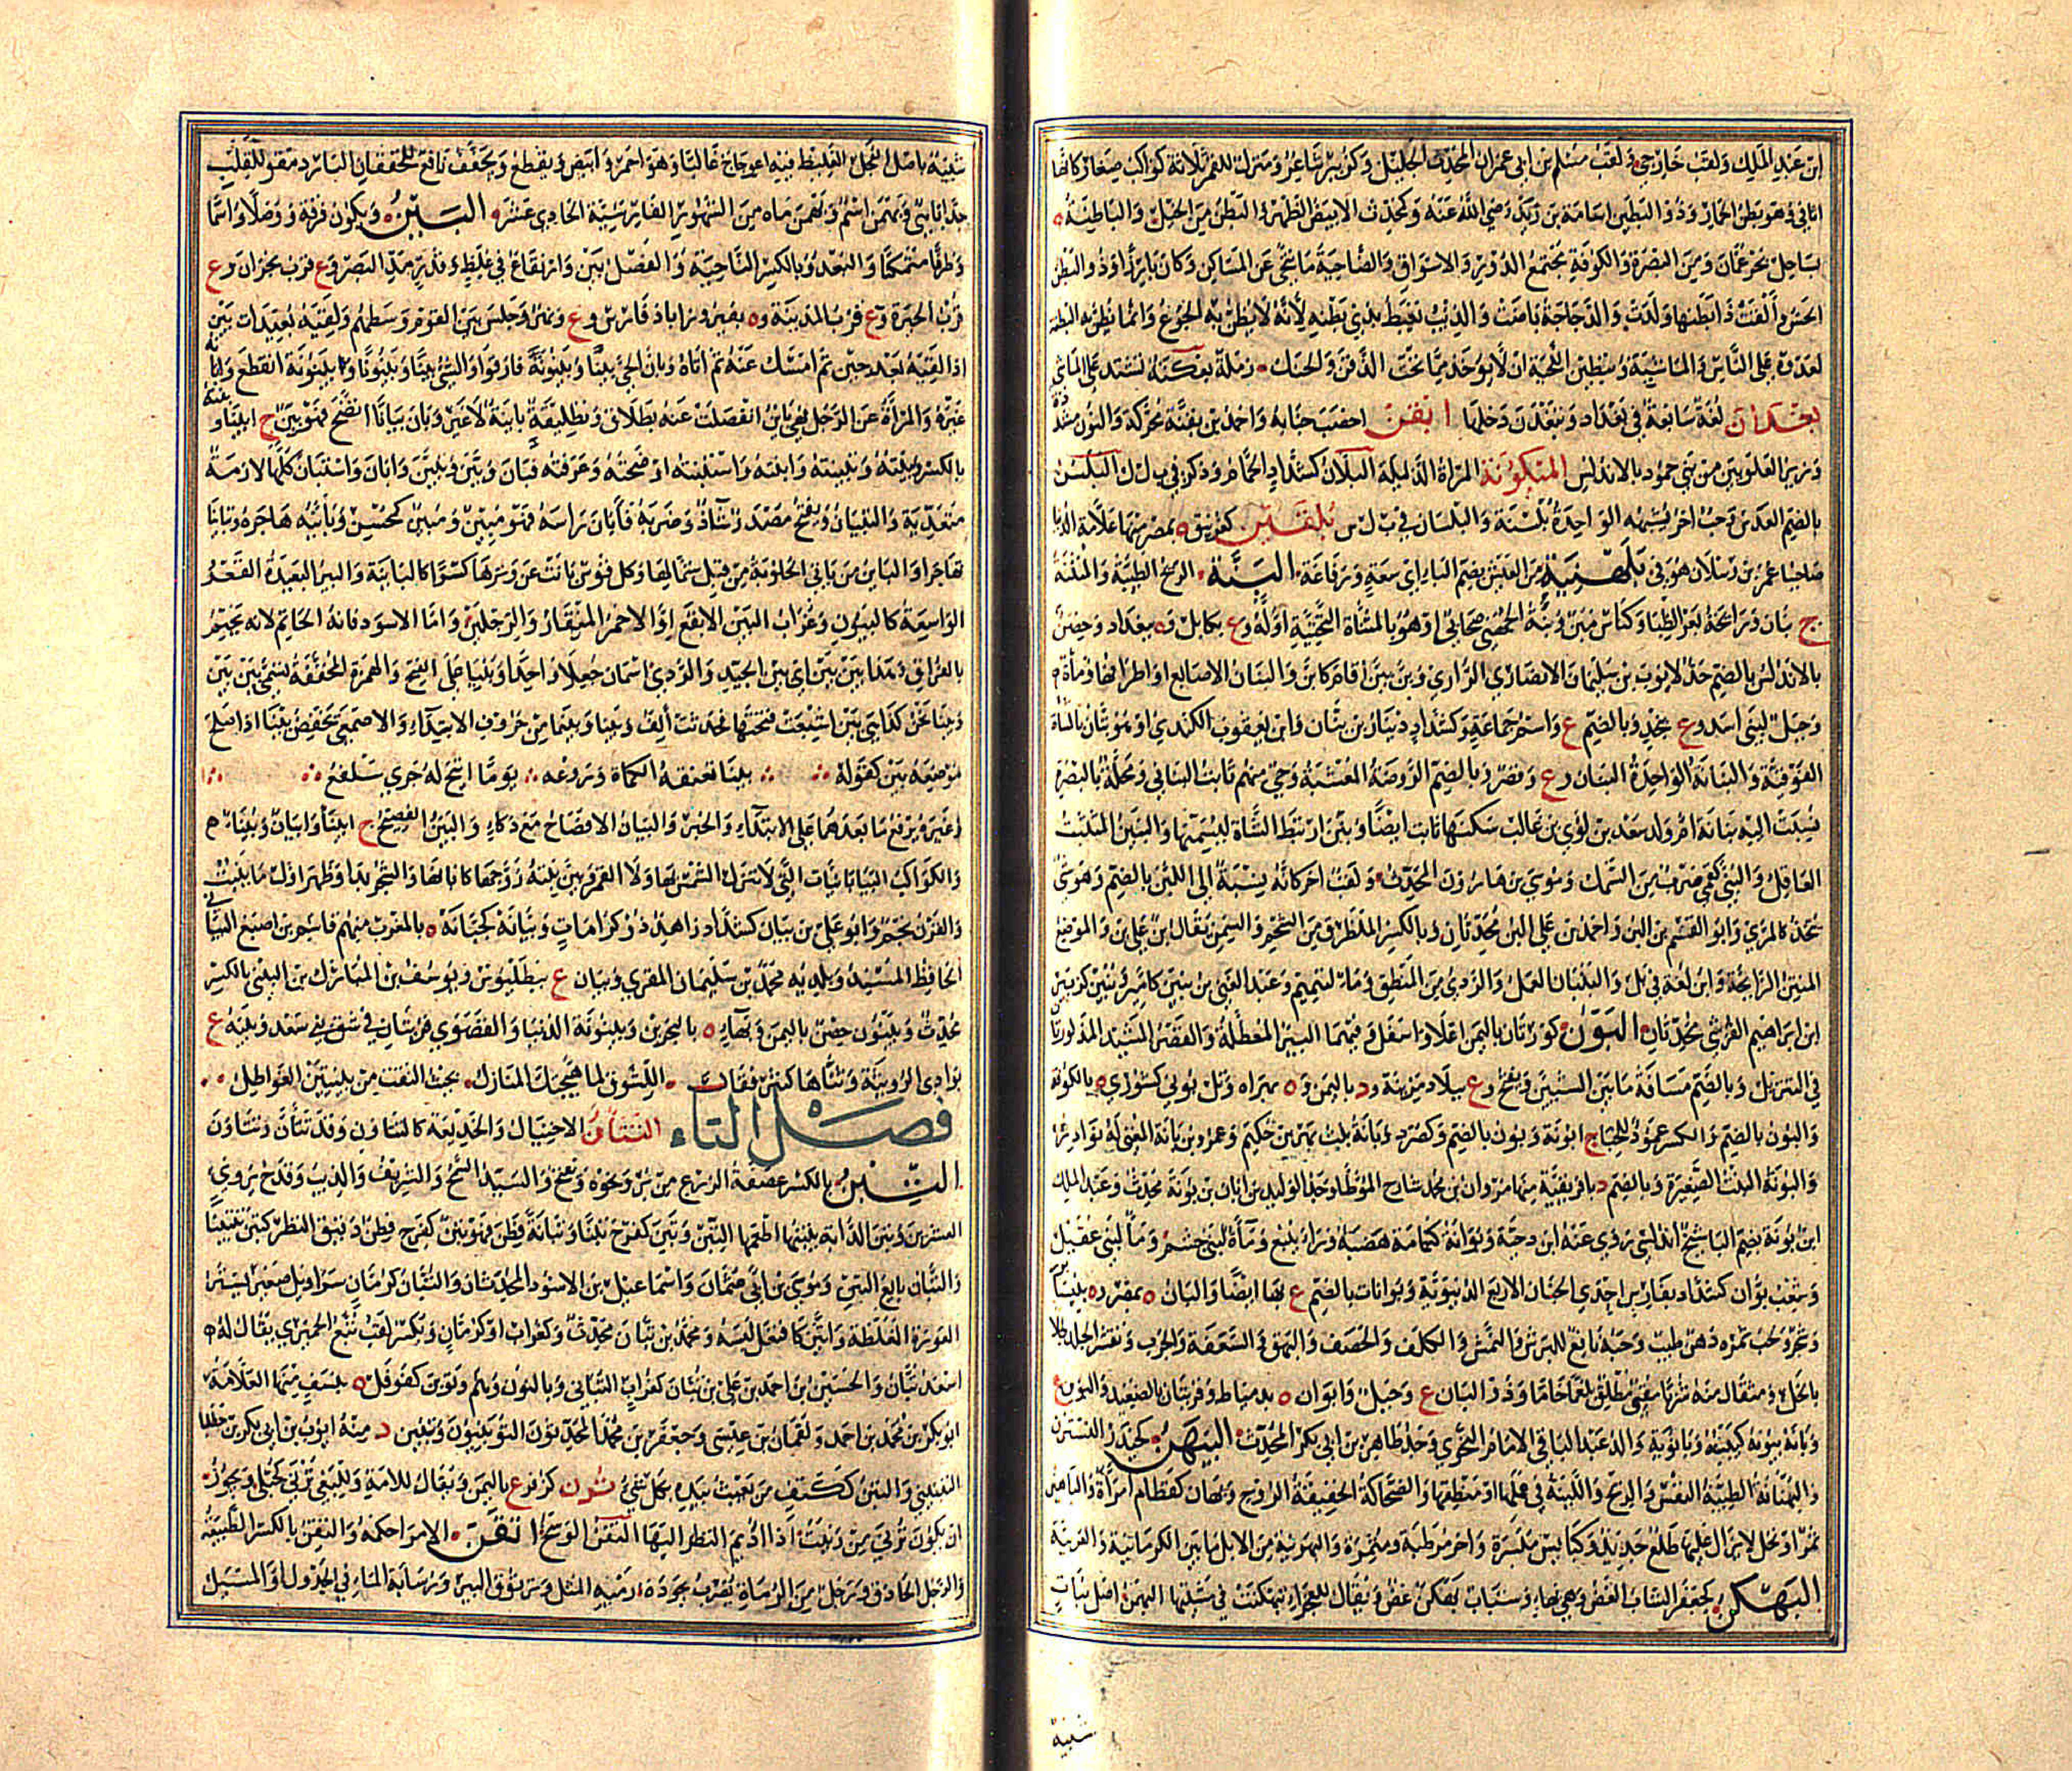 ابن عبد الملك ولقب خارجي ولقب مسلم بن ابي عمران المحدث الجليل وكزبير شاعر ومنزل للقمر ثلاثة كواكب صغار كانها
اثافي وهو بطن الحمل وذو البطين اسامة بن زيد رضي الله عنه وكمحدث الابيض الظهر والبطن من الخيل والباطنة ه
بساحل بحر عمان ومن البصرة والكوفة مجتمع الدور والاسواق والضاحية ما تنحى عن المساكن وكان بارزا وذو البطن
الجعس والقت ذا بطنها ولدت والدجاجة باضت والذئب يغبط بذي بطنه لانه لا يظن به الجوع وانما يظن به البطنة
لعدوه على الناس والماشية وتبطين اللحية ان لا يؤخذ مما تحت الذقن والحنك رملة بعكنة تشتد على الماشي
بغدان لغة سابعة في بغداد وتبغدن دخلها ابغن اخصب جنابه واحمد بن بقنة محركة والنون مشددة
وزير العلويين من بني حمود بالاندلس المتبكونة المراة الذليلة البلان كشداد الحمام وذكر في ب ل ل البلسن
بالضم العدس وحب اخر يشبهه الواحدة بلسنة والبلسان في ب ل س بلقين كغرنيق ه بمصر منها علامة الدنيا
صاحبنا عمر بن رسلان هو في بلهنية من العيش بضم الباء اي سعة ورفاغة البنة الريح الطيبة والمنتنة
ج بنان ورائحة بعر الظبا وكناس مبن وبنة الجهني صحابي او هو بالمثناة التحتية اوله وع بكابل وه ببغداد وحصن
بالاندلس بالضم جد لايوب بن سليمان الانصاري الرازي وبن يبن اقام كابن والبنان الاصابع او اطرافها وماءة
وجبل لبني اسد وع بنجد وبالضم ع واسم جماعة وكشداد دينار بن بنان وابن يعقوب الكندي او هو بتان بالتاء
الفوقية والبنانة الواحدة البنان وع وقصر وبالضم الروضة المعشبة وحي منهم ثابت البناني ومحلة بالبصرة
نسبت اليه بنانة ام ولد سعد بن لؤي بن غالب سكنها ثابت ايضا وبنن ارتبط الشاة ليسمنها والبنين المتثبت
العاقل والبني كقمي ضرب من السمك وموسى بن هارون المحدث ولقب اخر كانه نسبة الى البن بالضم وهو شي
يتخذ كالمري وابو القسم بن البن واحمد بن علي البن محدثان وبالكسر الطرق من الشحم والسمن يقال ابن على بن والموضع
المنتن الرائحة وابن لغة في بل والبنبان العمل والردئ من المنطق وماء لتميم وعبد الغني بن بنين كامير وبنين كزبير
ابن ابراهيم القرشي محدثان البون كورتان باليمن اعلا واسفل وفيهما البير المعطلة والقصر المشيد المذكورتان
في التنزيل وبالضم مسافة ما بين الشيئين ويفتح وع ببلاد مزينة ود باليمن وه بهراه وتل بوني كشورى ه بالكوفة
والبون بالضم والكسر عمود للخباج ابونة وبون بالضم وكصرد وبانة بنت بهز بن حكيم وعمرو بن بانة المغني له نوادر
والبونة البنت الصغيرة وبالضم د بافريقية منها مروان بن محمد شارح الموطا وجد الوليد بن ابان بن بونة محدث وعبد الملك
ابن بونة بضم البا شيخ اندلسي روى عنه ابن دحية وبوانة كثمامة هضبة وراء ينبع وماءة لبني جشم وماء لبني عقيل
وشعب بوان كشداد بفارس احدى الجنان الاربع الدنيوية وبوانات بالضم ع بها ايضا والبان ه بمصر وه بنيسابور
وشجر ولحب ثمره دهن طيب وحبه نافع للبرش والنمش والكلف والحصف والبهق والسعفة والجرب وتقشر الجلد طلاء
بالخل ومثقال منه شربا مقيئ مطلق بلغما خاما وذو البان ع وجبل وابوان ه بدمياط وقريتان بالصعيد والبون ع
وبانه يبونه كيبينه وبانوية والد عبد الباقي الامام النحوي وجد طاهر بن ابي بكر المحدث البهن كحيدر النسترن
والبهنانة الطيبة النفس والريح واللينة في عملها او منطقها والضحاكة الخفيفة الروح وبهان كقطام امراة والباهين
تمر او نخل لا يزال عليها طلع جديد وكبايس مبسرة واخر مرطبة ومثمرة والبهونية من الابل ما بين الكرمانية والعربية
البهكن كجعفر الشاب الغض وهي بهاء وشباب بهكن غض ويقال للعجزاء تبهكنت في مشيتها البهمن اصل نبات
شبيه
شبيه باصل الفجل الغليظ فيه اعوجاج غالبا وهو احمر وابيض ويقطع ويجفف نافع للخفقان البارد مقو للقلب
جدا باهي وبهمن اسم وبهمن ماه من الشهور الفارسية الحادي عشر البين ويكون فرقة ووصلا واسما
وظرفا متمكنا والبعد وبالكسر الناحية والفصل بين وارتفاع في غلظ وقدر مد البصر وع قرب نجران وع
قرب الحيرة وع قرب المدينة وه بفيروزاباذ فارس وع ونهر وجلس بين القوم وسطهم ولقيه بعيدات بين
اذا لقيه بعد حين ثم امسك عنه ثم اتاه وبان الحي بينا وبينونة فارقوا والشئ بينا وبيونا وبينونة انقطع وابانه
غيره والمراة عن الرجل فهي باين انفصلت عنه بطلاق وتطليقة باينة لا غير وبان بيانا اتضح فهو بين ج ابيناء
بالكسر وبينته وتبينته وابنته واستبنته اوضحته وعرفته فبان وبين وتبين وابان واستبان كلها لازمة
متعدية والتبيان ويفتح مصدر شاذ وضربه فابان راسه فهو مبين ومبين كمحسن وباينه هاجره وتباينا
تهاجرا والباين من ياتي الحلوبة من قبل شمالها وكل قوس بانت عن وترها كثيرا كالباينة والبير البعيدة القعر
الواسعة كالبيون وغراب البين الابقع او الاحمر المنقار والرجلين واما الاسود فانه الحاتم لانه يحتم
بالفراق وهذا بين بين اي بين الجيد والردي اسمان جعلا واحدا وبنيا على الفتح والهمزة المخففة تسمى بين بين
وبينا نحن كذا هي بين اشبعت فتحتها فحدثت الف وبينا وبينما من حروف الابتداء والاصمعي يخفض بينا اذا صلح
موضعه بين كقوله بينا تعنقه الكماة وروغه يوما اتيح له جري سلفع
وغيره يرفع ما بعدهما على الابتداء والخبر والبيان الافصاح مع ذكاء والبين الفصيح ج ابيناء وابيان وبيناء
والكواكب البيانيات التي لا تنزل الشمس بها ولا القمر وبين بينه زوجها كابانها والشجر بدا وظهر اول ما ينبت
والقرن نجم وابو علي بن بيان كشداد زاهد ذو كرامات وبيانة كجبانة ه بالمغرب منهم قاسم بن اصبغ البياني
الحافظ المسند وبلديه محمد بن سليمان المقري وبيان ع ببطليوس ويوسف بن المبارك بن البيني بالكسر
محدث وبينون حصن باليمن وبهاء ه بالبحرين وبينونة الدنيا والقصوى قريتان في شق بني سعد وبينة ع
بوادي الرويثة وثناها كثير فقال اللشوق لما هيجتك المنازل بحيث التقت من بينتين العواطل
فصل التاء التتان الاحتيال والخديعة كالتتاون وقد تتان وتتاون
التبن بالكسر عصيفة الزرع من بر ونحوه ويفتح والسيد السمح والشريف والذيب وقدح يروي
العشرين وتبن الدابة يتبنها اطعمها التبن وتبن كفرح تبنا وتبانة فطن فهو تبن كفرح فطن دقيق النظر كتبن تتبينا
والتبان بايع التبن وموسى بن ابي عثمان واسماعيل بن الاسود المحدثان والتبان كرمان سراويل صغير يستر
العورة المغلظة واتبن كافتعل لبسه ومحمد بن تبان محدث وكغراب او كرمان ويكسر لقب تبع الحميري يقال له
اسعد تبان والحسين بن احمد بن علي بن تبان كغراب التباني وبالنون وهم وتوبن كفوفل ه بنسف منها العلامة
ابو بكر بن محمد بن احمد ولقمان بن عيسى وجعفر بن محمد المحدثون التوبنيون وتبنين د منه ايوب بن ابي بكر بن خطلبا
التبنيني والتبن ككتف من يعبث بيده بكل شئ تبرن كزفر ع باليمن ويقال للامة وللبغي ترنى كحبلى ويجوز
ان يكون ترني من رنيت اذا اديم النظر اليها التفن الوسخ اتقن الامر احكمه والتقن بالكسر الطبيعة
والرجل الحاذق ورجل من الرماة يضرب بجودة رميه المثل وترنوق البير ورسابة الماء في الجدول او المسيل